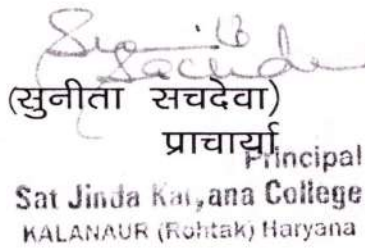 Sunita
Sachdeva
(सुनीता सचदेवा)
प्राचार्या
Principal
Sat Jinda Kalyana College
KALANAUR (Rohtak) Haryana